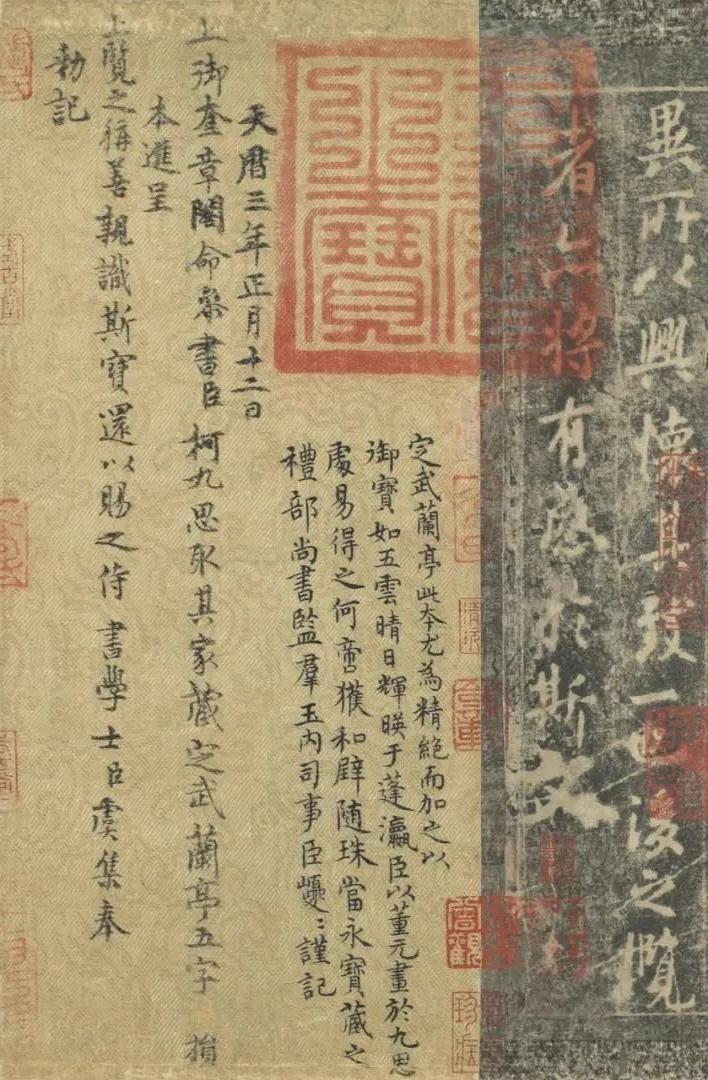 異所以興懷其致一也後之攬
者亦將有感於斯文
定武蘭亭此本尤為精絕而加之以
御寶如五雲晴日輝暎于蓬瀛臣以董元畫於九思
處易得之何啻獲和璧隨珠當永寶藏之
禮部尚書監羣玉內司事臣巙〻謹記
天曆三年正月十二日
上御奎章閣命參書臣柯九思取其家藏定武蘭亭五字損
本進呈
上覽之稱善親識斯寶還以賜之侍書學士臣虞集奉
勑記